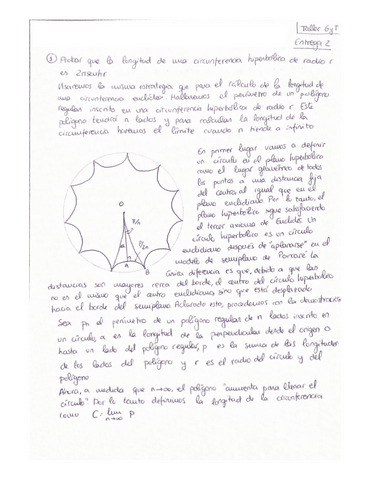 Taller GyT
Entrega 2
① Probar que la longitud de una circunferencia hiperbólica de radio r
es 2πsenhr
Usaremos la misma estrategia que para el cálculo de la longitud de
una circunferencia euclídea. Hallaremos el perímetro de un polígono
regular inscrito en una circunferencia hiperbólica de radio r. Este
polígono tendrá n lados y para calcular la longitud de la
circunferencia haremos el límite cuando n tiende a infinito
En primer lugar vamos a definir
un círculo en el plano hiperbólico
como el lugar geométrico de todos
los puntos a una distancia fija
del centro al igual que en el
plano euclidiano. Por lo tanto, el
plano hiperbólico sigue satisfaciendo
el tercer axioma de Euclides. Un
círculo hiperbólico es un círculo
euclidiano después de "aplanarse" en el
modelo de semiplano de Poincaré. La
única diferencia es que, debido a que las
O
A
B
distancias son mayores cerca del borde, el centro del círculo hiperbólico
no es el mismo que el centro euclidiano sino que está desplazado
hacia el borde del semiplano. Aclarado esto, procedemos con la demostración
Sea pn el perímetro de un polígono regular de n lados inscrito en
un círculo, a es la longitud de la perpendicular desde el origen O
hasta un lado del polígono regular, p es la suma de las longitudes
de los lados del polígono y r es el radio del círculo y del
polígono
Ahora, a medida que n→∞, el polígono "aumenta para llenar el
círculo". Por lo tanto definimos la longitud de la circunferencia
como C = lim p
n→∞